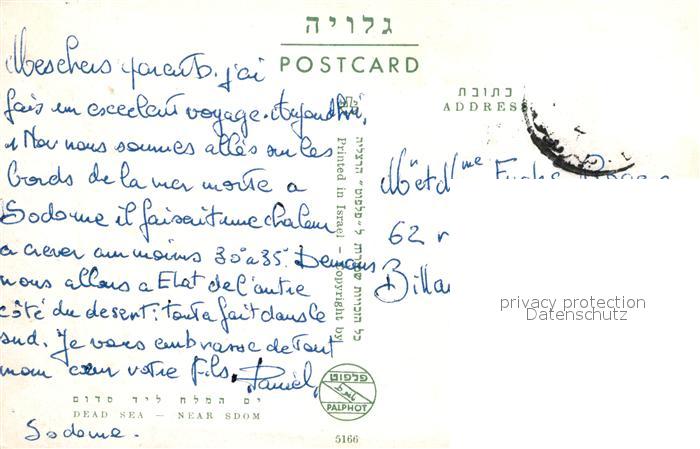 גלויה
POSTCARD
כתובת
ADDRESS
Mes chers parents. j'ai
fais un excelent voyage. Aujourd'hui,
1 Nov nous sommes allés sur les
bords de la mer morte a
Sodome il faisait une chaleur
a crever au moins 30° a 35°. Demains
nous allons a Elat de l'autre
côté du desert: tout a fait dans le
sud. Je vous embrasse de tout
mon cœur votre fils. Daniel,
Sodome.
ים המלח ליד סדום
DEAD SEA — NEAR SDOM
Printed in Israel — Copyright by
כל הזכויות שמורות ל״פלפוט״ הרצליה
פלפוט
PALPHOT
5166
M et Mme
62 r
Billan
privacy protection
Datenschutz